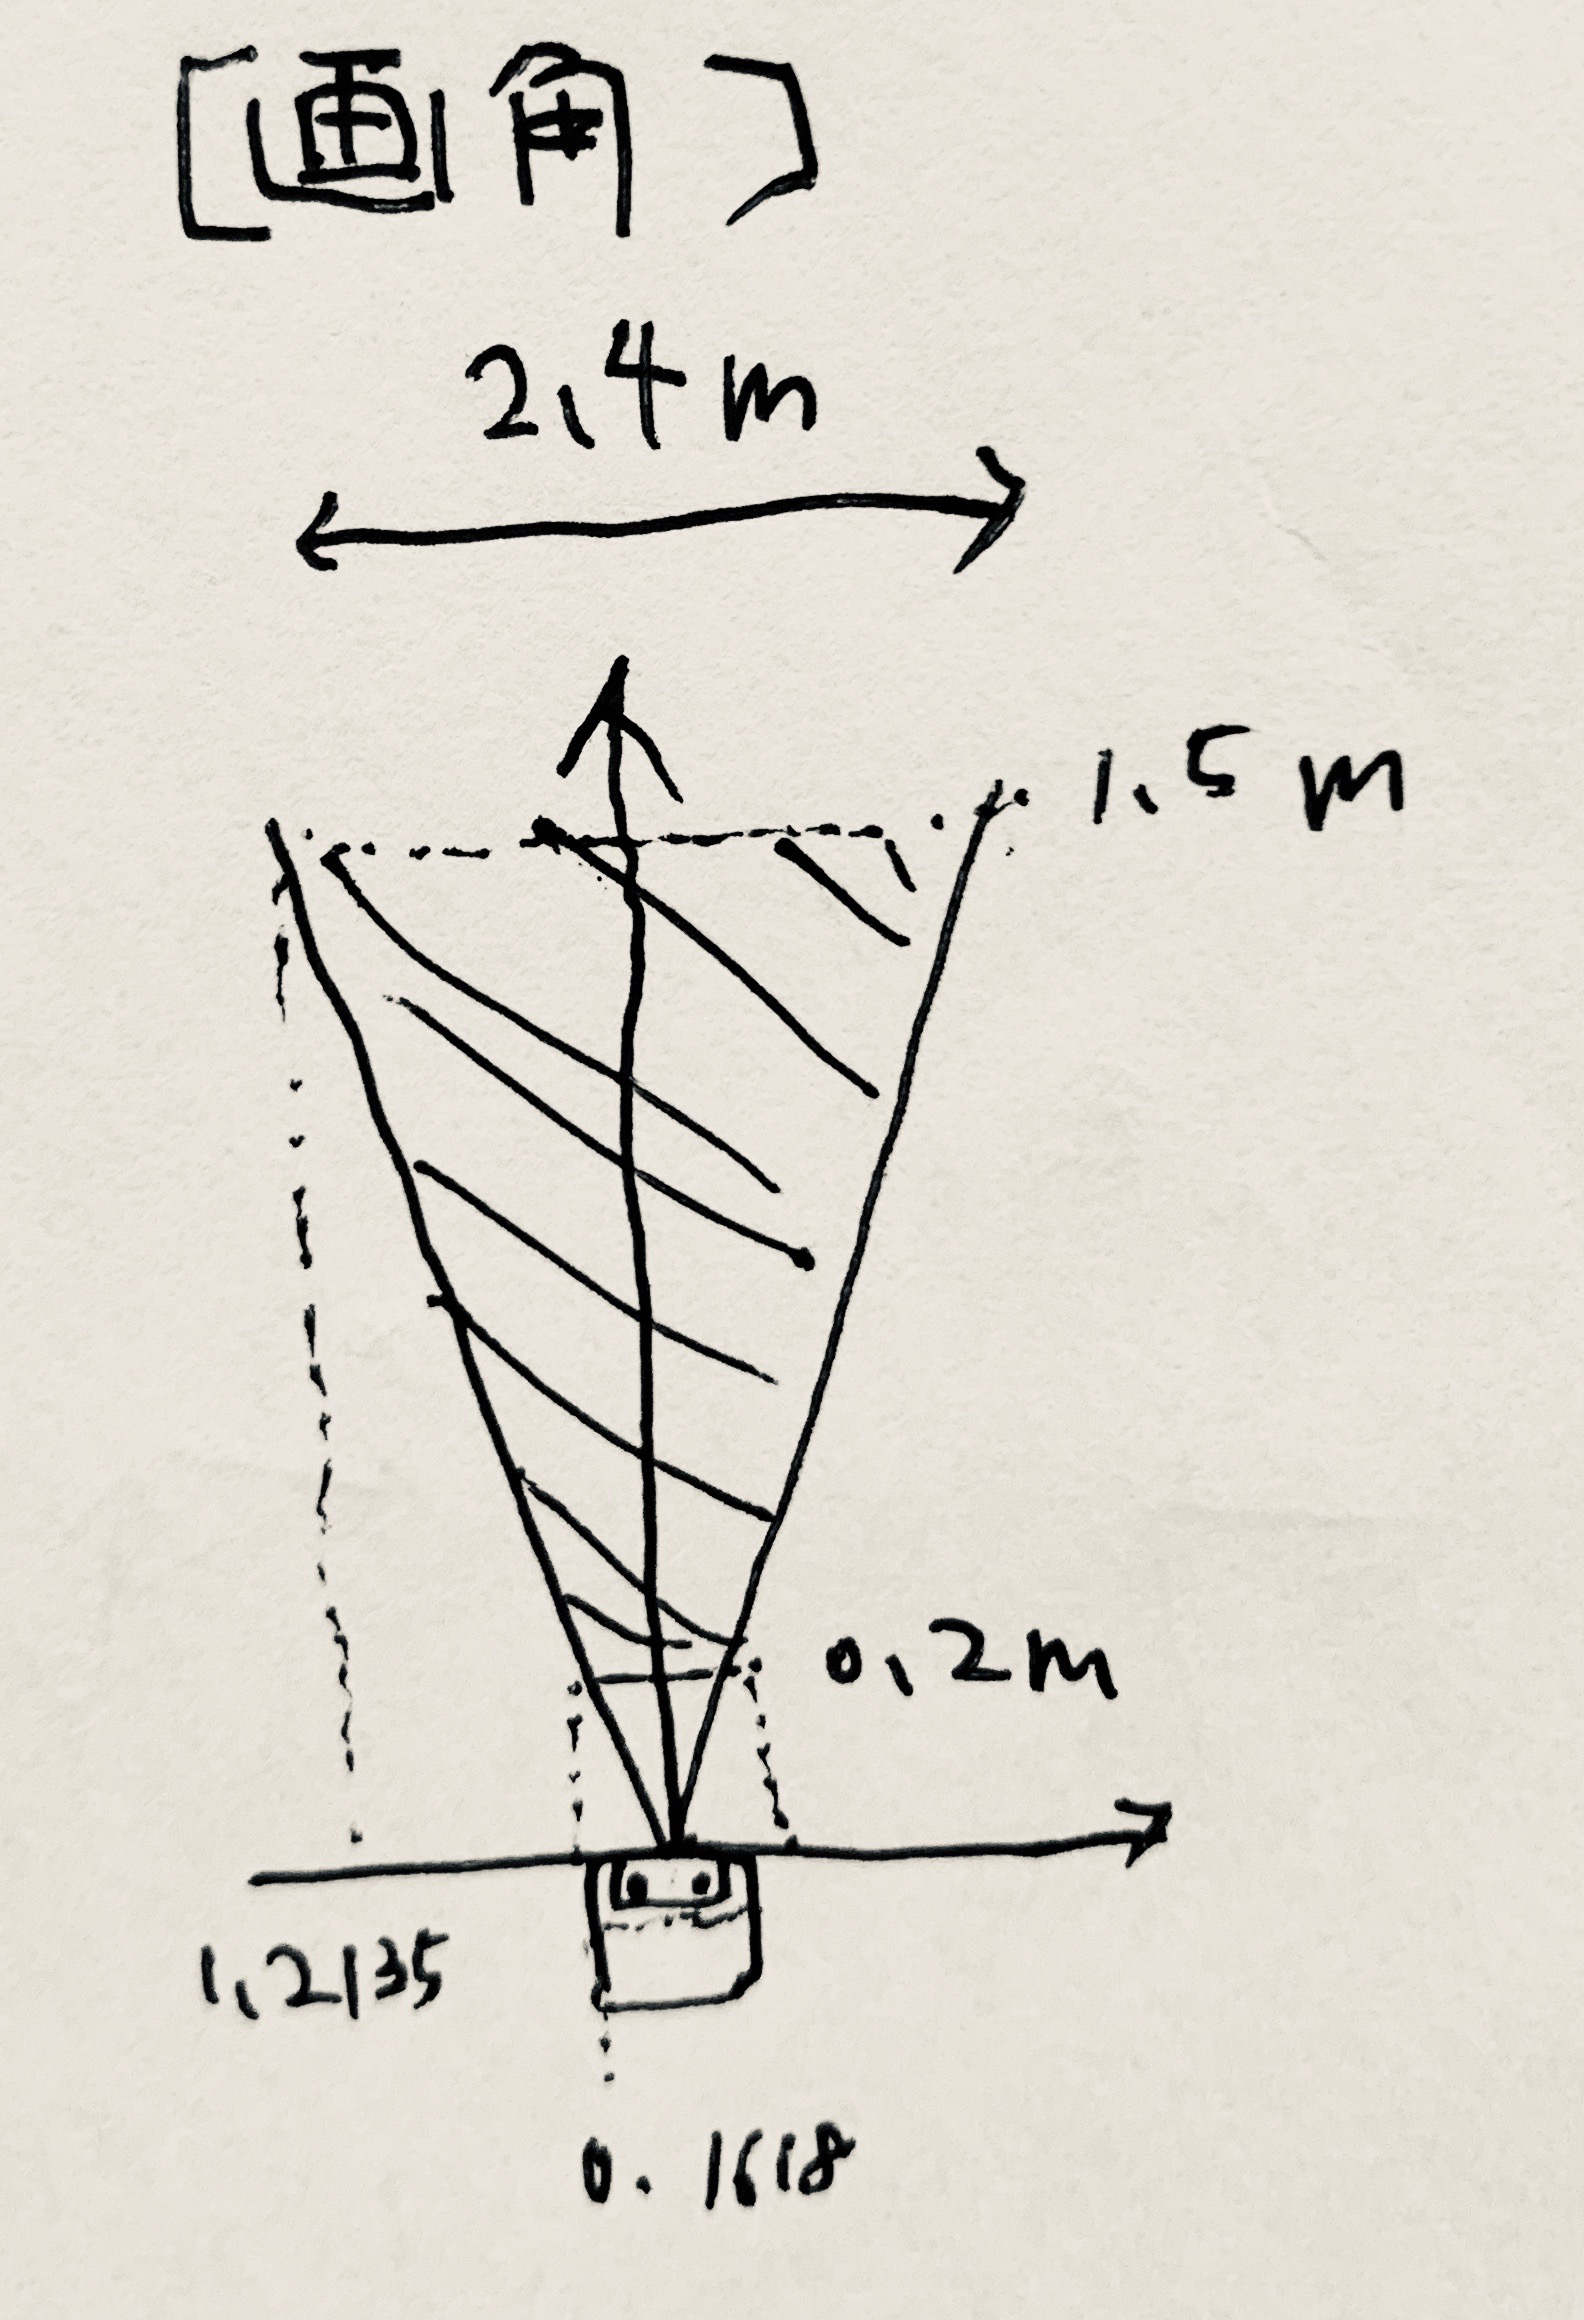 [画角]
2.4m
1.5m
0.2m
1.2135
0.1618